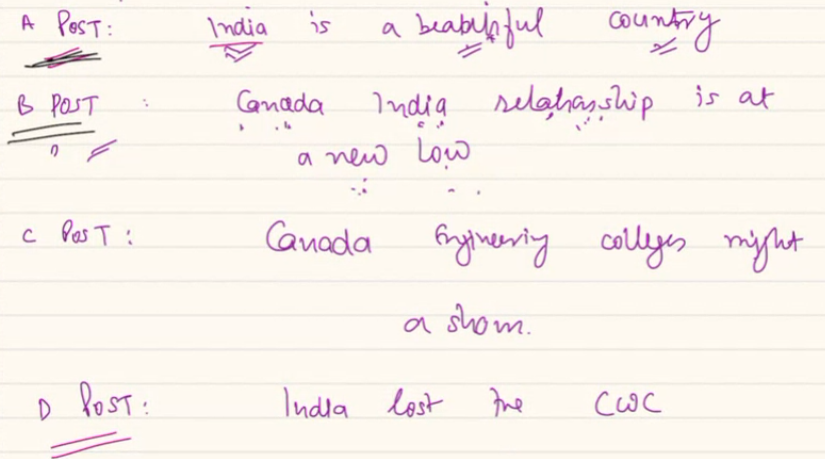 A POST: India is a beautiful country
B POST : Canada India relationship is at
a new low
C POST: Canada Engineering colleges might
a sham.
D POST: India lost the CWC